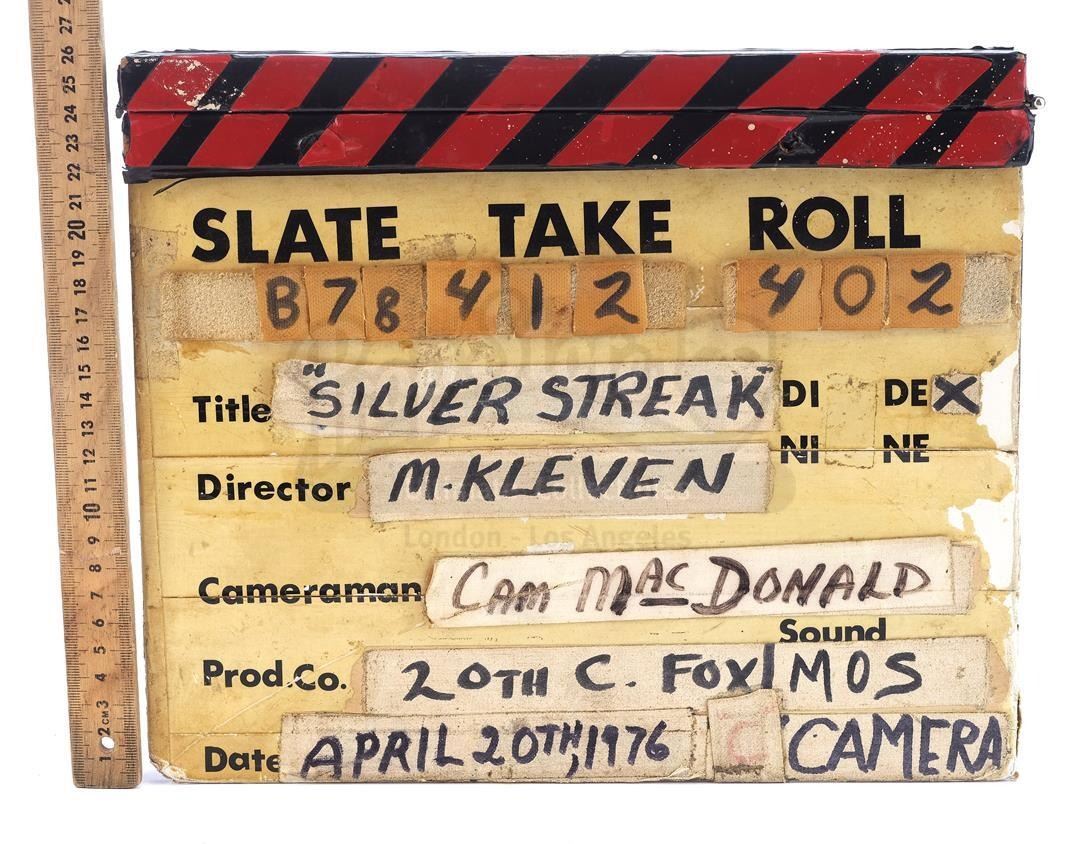 SLATE TAKE ROLL
B 7 8 4 1 2 4 0 2
Title "SILVER STREAK" DI DE X
NI NE
Director M. KLEVEN
London - Los Angeles
Cameraman CAM MACDONALD
Sound
Prod.Co. 20TH C. FOX MOS
Date APRIL 20TH, 1976 "C" CAMERA
1 2 CM 3 4 5 6 7 8 9 10 11 12 13 14 15 16 17 18 19 20 21 22 23 24 25 26 27